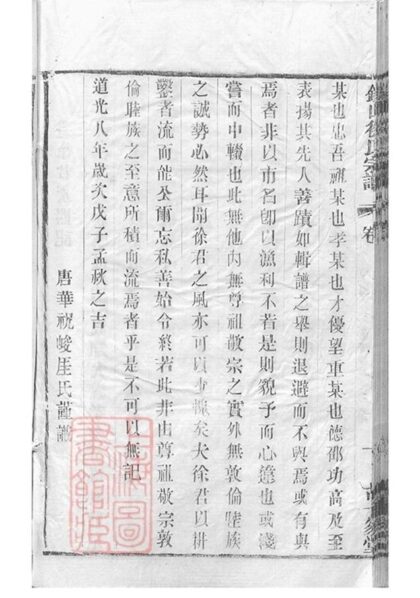 某也忠吾祖某也孝某也才優望重某也德邵功高及至
表揚其先人善蹟如輯譜之舉則退避而不與焉或有與
焉者非以市名卽以漁利不若是則貌予而心違也或淺
嘗而中輟也此無他內無尊祖敬宗之實外無敦倫睦族
之誠勢必然耳聞徐君之風亦可以少愧矣夫徐君以耕
鑿者流而能公爾忘私善始令終若此非由尊祖敬宗敦
倫睦族之至意所積而流焉者乎是不可以無記
道光八年歲次戊子孟秋之吉
唐華祝峻崖氏謹譔
徐氏宗譜
卷
上海圖
書館藏